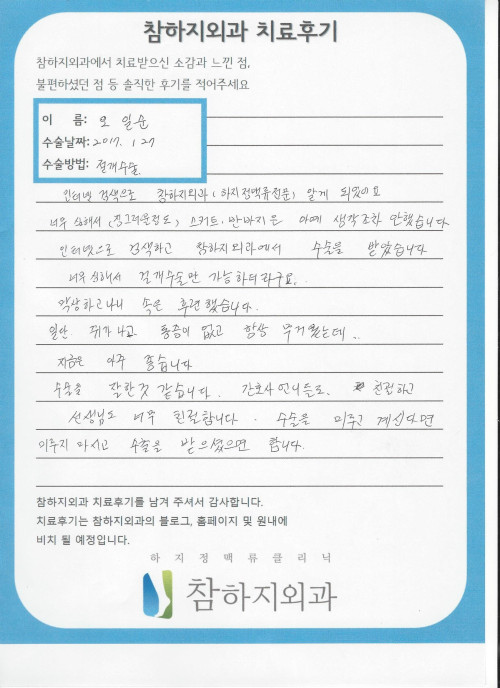 참하지외과 치료후기
참하지외과에서 치료받으신 소감과 느낀 점,
불편하셨던 점 등 솔직한 후기를 적어주세요
이 름: 오 일순
수술날짜: 2017. 1 27
수술방법: 절개수술
인터넷 검색으로 참하지외과 (하지정맥류전문) 알게 되었어요
너무 심해서 (징그러울정도) 스커트, 반바지은 아예 생각조차 안했습니다
인터넷으로 검색하고 참하지외과에서 수술을 받았습니다
너무 심해서 절개수술만 가능하더라구요.
막상하고나니 속은 후련했습니다.
일단. 쥐가 나고 통증이 없고 항상 무거웠는데..
지금은 아주 좋습니다
수술을 잘한것 같습니다. 간호사 언니들도, 친절하고
선생님도 너무 친절합니다. 수술을 미루고 계신다면
미루지 마시고 수술을 받으셨으면 합니다.
참하지외과 치료후기를 남겨 주셔서 감사합니다.
치료후기는 참하지외과의 블로그, 홈페이지 및 원내에
비치 될 예정입니다.
하지정맥류클리닉
참하지외과